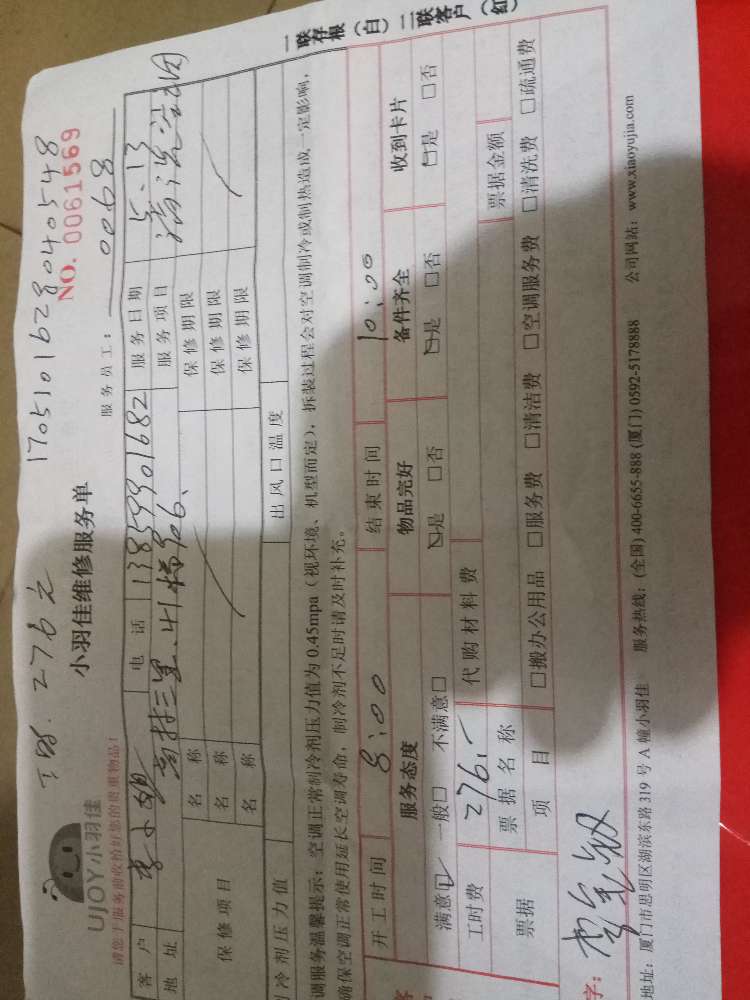 276元 1705101628040548
UJOY小羽佳 小羽佳维修服务单 NO. 0061569
请您于服务前收检好您的贵重物品! 服务员工: 0068
一联存根(白) 二联客户(红)
客户 李小姐 电话 13859901682 服务日期 5.13
地址 高林三里 41梯 906. 服务项目
保修项目 名称 保修期限
名称 保修期限
名称 保修期限
冷剂压力值 出风口温度
调服务温馨提示:空调正常制冷剂压力值为0.45mpa(视环境、机型而定),拆装过程会对空调制冷或制热造成一定影响,
确保空调正常使用延长空调寿命,制冷剂不足时请及时补充。
开工时间 8:00 结束时间 10:00
服务态度 物品完好 备件齐全 收到卡片
满意☑ 一般□ 不满意□ ☑是 □否 ☑是 □否 □是 □否
工时费 276.- 代购材料费
票据 票据名称 票据金额
项目 □搬办公用品 □服务费 □清洁费 □空调服务费 □清洗费 □疏通费
字:
地址:厦门市思明区湖滨东路319号A幢小羽佳 服务热线:(全国)400-6655-888 (厦门)0592-5178888 公司网站:www.xiaoyujia.com